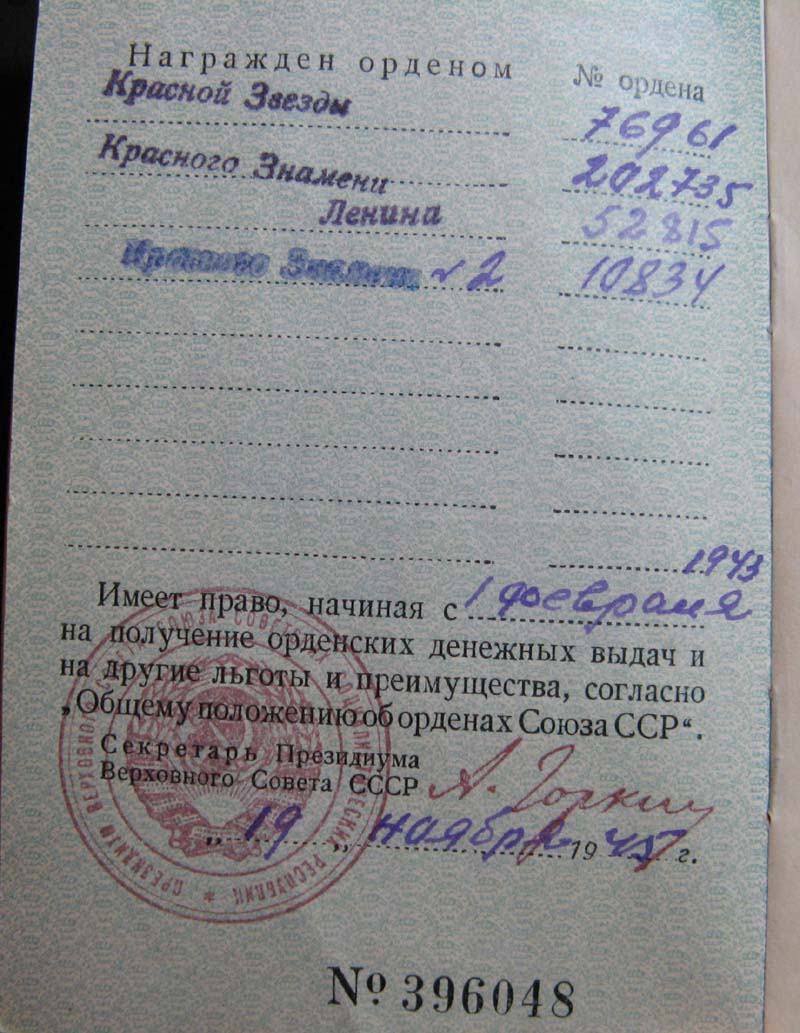 Награжден орденом № ордена
Красной Звезды 76961
Красного Знамени 202735
Ленина 52815
Красного Знамени №2 10834
1943
Имеет право, начиная с 1 февраля
на получение орденских денежных выдач и
на другие льготы и преимущества, согласно
„Общему положению об орденах Союза ССР“.
Секретарь Президиума
Верховного Совета СССР А. Горкин
„19„ ноября 1945 г.
№ 396048